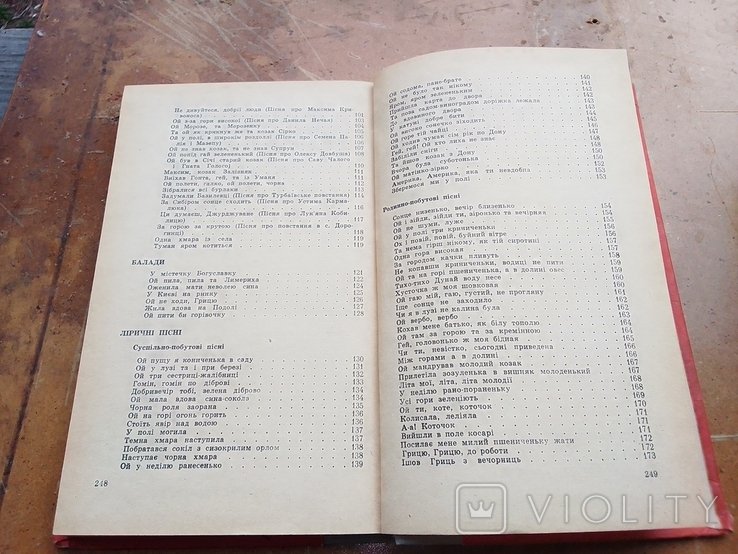 Не дивуйтеся, добрії люди (Пісня про Максима Кри-
воноса) 101
Ой з-за гори високої (Пісня про Данила Нечая) 104
Ой Морозе, та Морозенку 105
Та ой як крикнув же та козак Сірко 106
Ой у полі, в широкім роздоллі (Пісня про Семена Па-
лія і Мазепу) 107
Ой не знав козак, та не знав Супрун 108
Ой попід гай зелененький (Пісня про Олексу Довбуша)
Ой був в Січі старий козак (Пісня про Саву Чалого
і Гната Голого)
Максим, козак Залізняк
Виїхав Гонта, гей, та із Уманя
Ой полети, галко, ой полети, чорна
Зібралися всі бурлаки
Задумали Базилевці (Пісня про Турбаївське повстання)
За Сибіром сонце сходить (Пісня про Устима Карма-
люка)
Ци думаєш, Джурджуване (Пісня про Лук'яна Коби-
лицю)
За горою за крутою (Пісня про повстання в с. Доро-
гинці) 118
Одна хмара із села 119
Туман яром котиться 119
БАЛАДИ
У містечку Богуславку 121
Ой пила, пила та Лимериха 122
Оженила мати неволею сина 124
У Києві на ринку 125
Ой не ходи, Грицю 126
Жила вдова на Подолі 127
Ой пити би горівочку 128
ЛІРИЧНІ ПІСНІ
Суспільно-побутові пісні
Ой пущу я кониченька в саду 130
Ой у лузі та і при березі 131
Ой три сестриці-жалібниці 132
Гомін, гомін по діброві 133
Добривечір тобі, зелена діброво 134
Ой мала вдова сина-сокола 134
Чорна роля заорана 135
Ой на горі огонь горить 136
Стоїть явір над водою 136
У полі могила 137
Темна хмара наступила 137
Побратався сокіл з сизокрилим орлом 138
Наступає чорна хмара 138
Ой у неділю ранесенько 139
248
Ой содома, пане-брате 140
Ой не було так нікому 141
Яром, яром зелененьким 142
Прийшла карта до двора 143
Та пова садом-виноградом доріжка лежала 143
У вдовиного двора 144
У катрні добре бити
Ой високо сонечко зіходить
Ой горе тій чайці
Ой ходив чумак сім рік по Дону
Гей, гей! Ой хто лиха не знає
Забіліли сніги
Та йшов козак з Дону 150
Вчора була суботонька 152
Ой матінко-зірко 152
Америка, Америка, яка ти невдобна 153
Зберемося ми у полі
Родинно-побутові пісні
Сонце низенько, вечір близенько 154
Ой і зійди, зійди ти, зіронько та вечірняя 154
Ой не шуми, луже 155
Ой у полі три криниченьки 155
Ох і повій, повій, буйний вітре 156
Та нема гірш нікому, як тій сиротині 156
Одна гора високая 157
За городом качки пливуть 158
Не копавши криниченьки, водиці не пити 159
Ой та ка горі пшениченька, а в долині овес 159
Тихо-тихо Дунай воду несе 160
Хусточка ж моя шовковая 161
Ой гаю мій, гаю, густий, не прогляну 161
Іще сонце не заходило 162
Чи я в лузі не калина була 162
Ой вербо, вербо 163
Кохав мене батько, як білу тополю 164
Ой там за горою та за кремінною 164
Гей, головонько ж моя бідная 165
Чи ти, невістко, сьогодні приведена 165
Між горами а в долині 166
Ой мандрував молодий козак 166
Прилетіла зозуленька з вишняк молоденький 167
Літа мої, літа, літа молодії 167
У неділю рано-пораненьку 168
Усі гори зеленіють 169
Ой ти, коте, коточок 170
Колисала, леліяла 171
А-а! Коточок 171
Вийшли в поле косарі 171
Посилає мене милий пшениченьку жати 172
Грицю, Грицю, до роботи 172
Ішов Гриць з вечорниць 173
249
VIOLITY